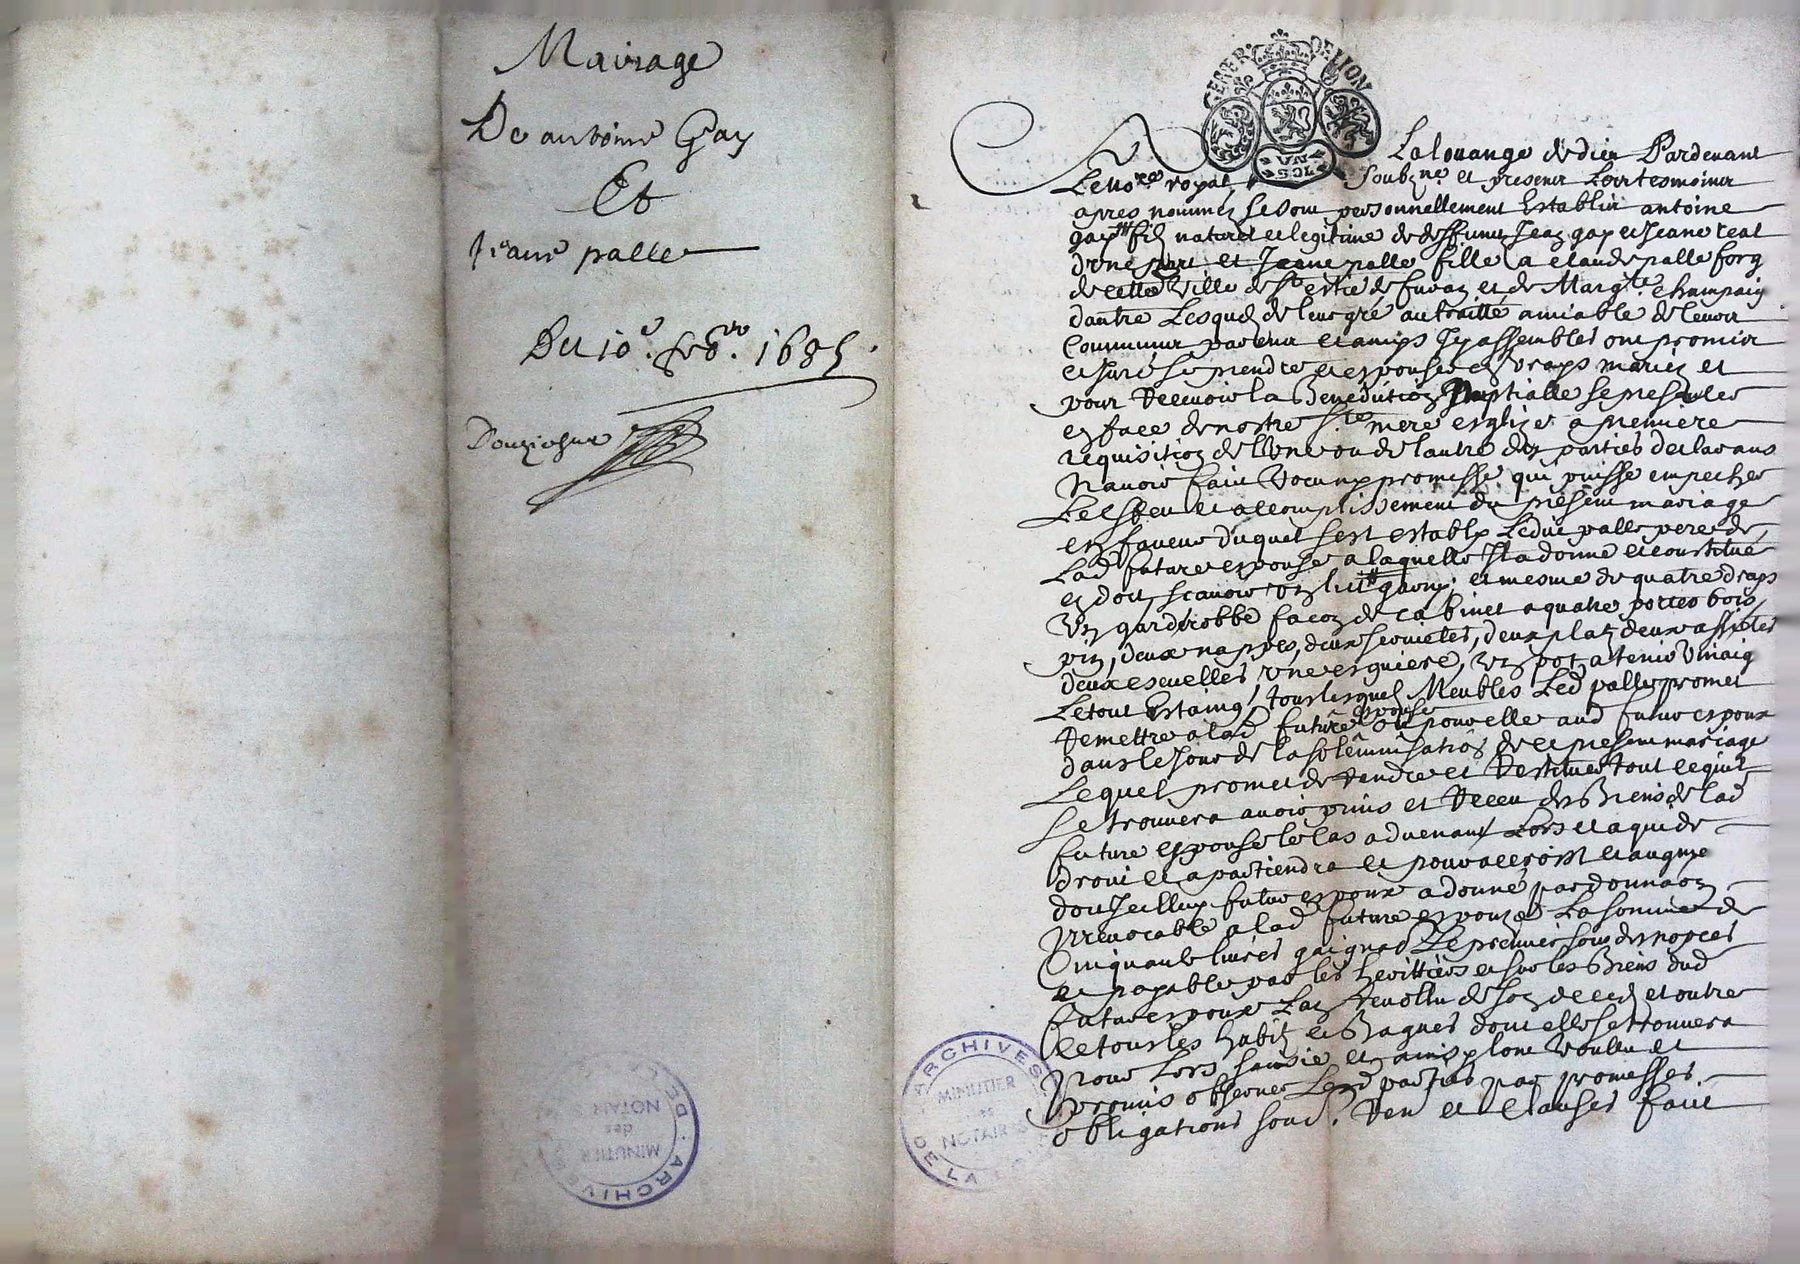 Mairage
De antoine Gay
Et
Jeane palle
Du 10e febvr 1685.
GENER. DE LION
UN SOL
A La louange de dieu Pardevant
Le nore royal soubzne et presents Les tesmoins
apres nommez se sont personnellement Establis antoine
gay filz naturel et legitime de deffuns Jean gay et Jeane real
dune part et Jeane palle fille a claude palle forg
de cette Ville de St estie de furan et de Margte champaig
dautre Lesquelz de leur gré authoritté amiable de leurs
Communs parens et amys Icy assembles ont promis
et Juré se prendre et espouser en vrays mariez et
pour Recevoir la Benediction Nuptialle se presenter
en face de nostre Ste mere esglize a premiere
requisition de Lune ou de lautre des parties declarans
Navoir faict promesse qui puisse empecher
Leffect et accomplissement du present mariage
en faveur duquel sest establx Ledict palle pere de
Lad future espouse a laquelle Il a donné et constitué
en dot, scavoir un lict garny, et mesme de quatre draps
Un garderobbe facon de cabinet a quatre portes bois
pin, deux nappes, deux serviettes, deux platz deux assiettes
deux escuelles, Une esguiere, un pot a tenir Vinaig
Le tout Estaing, tous lesquelz Meubles Led palle promet
Remettre a lad future espouse ou pour elle aud futur espoux
dans le Jour de la solemnisation de ce present mariage
Lequel promet de Rendre et Restituer tout ce quil
Se trouvera avoir prins et Receu des Biens de lad
future espouse le cas advenant Lors et a qui de
droict apartiendra et pour accroist et augme
dot Jcelluy futur espoux a donné par donnaon
Irrevocable a lad future espouze La somme de
Cinquante livres gaignad Le premier Jour des nopces
et payable par les herittiers et sur les Biens dud
futur espoux Lan Revollu de son decedz et outre
ce tous les habitz et Bagues dont elle se trouvera
pour Lors saisie et ainsy lont Voullu et
promis observer Lesd parties par promesses
obligations soub. Ren et Clauses faict
ARCHIVES DE LA
MINUTIER
des
NOTAIRES
ARCHIVES DE LA
MINUTIER
des
NOTAIRES